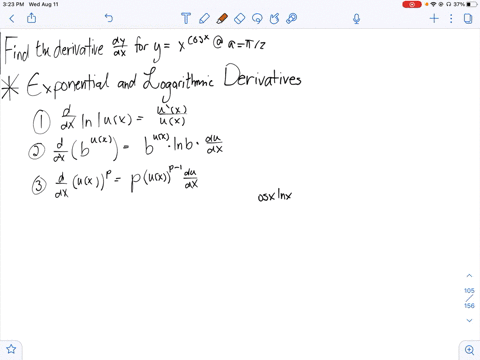 3:23 PM Wed Aug 11
37%
Find the derivative dy/dx for y = x^cosx @ a=π/2
* Exponential and Logarithmic Derivatives
① d/dx ln|u(x) = u'(x)/u(x)
② d/dx (b^u(x)) = b^u(x) · ln b · du/dx
③ d/dx (u(x))^p = p(u(x))^p-1 du/dx
osx lnx
105
/
156